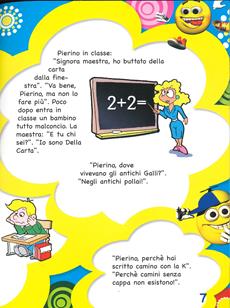 Pierino in classe:
"Signora maestra, ho buttato della
carta
dalla fine-
stra". "Va bene,
Pierina, ma non lo
fare più". Poco
dopo entra in
classe un bambino
tutto malconcio. La
maestra: "E tu chi
sei?". "Io sono Della
Carta".
2+2=
"Pierino, dove
vivevano gli antichi Galli?".
"Negli antichi pollai!".
"Pierino, perchè hai
scritto camino con la K".
"Perchè camini senza
cappa non esistono!".
7